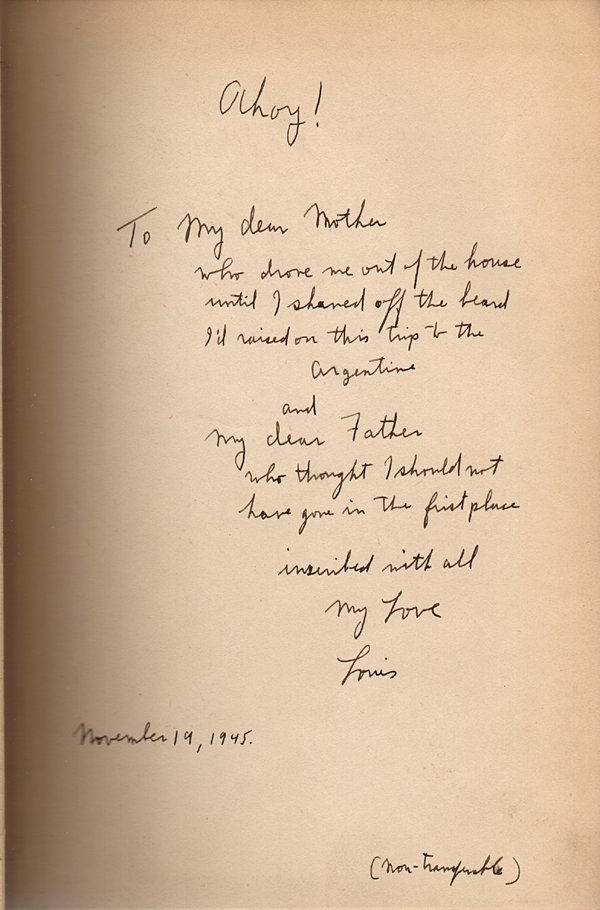 Ahoy!
To My dear Mother
who drove me out of the house
until I shaved off the beard
I'd raised on this trip to the
Argentine
and
My dear Father
who thought I should not
have gone in the first place
inscribed with all
My Love
Louis
November 19, 1945.
(non-transferable)